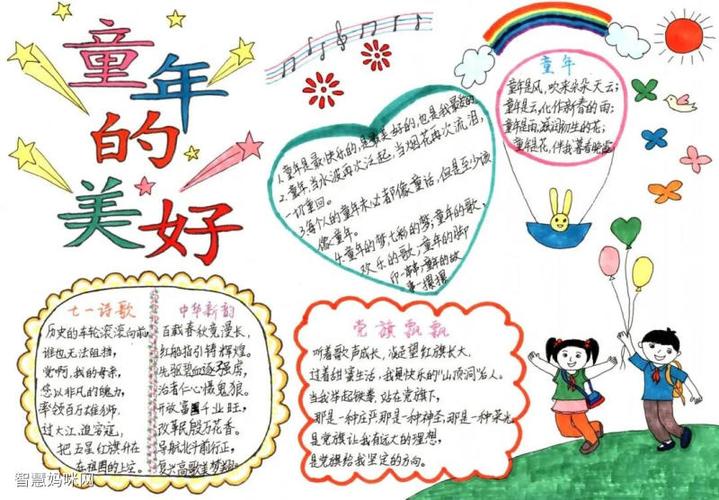 童年
的
美好
童年
童年是风,吹来朵朵天云;
童年是云,化作新春的雨;
童年是雨,滋润初生的花;
童年是花,伴我著着晓露
1.童年是最快乐的,是最美好的,也是我最爱的
2.童年,当水波再次泛起,当烟花再次流泪,
一切重回。
3.每个人的童年未必都像童话,但是至少该
像童年。
4.童年的梦,七彩的梦,童年的歌,
欢乐的歌,童年的脚
印一串串,童年的故
事一摞摞
七一诗歌
历史的车轮滚滚向前,
谁也无法阻挡,
党啊,我的母亲,
您以非凡的魄力,
率领百万雄师,
过大江,迫穷寇,
把五星红旗升在
在祖国的上空。
中华新韵
百载春秋竞漫长,
红船指引铸辉煌。
先驱碧血逐强虏,
治者仁心慑鬼狼。
开放富国千业旺,
改革民殷万花香。
导航北斗前行正,
复兴高歌美梦
党旗飘飘
听着歌声成长,凝望红旗长大
过着甜蜜生活,我是快乐的"山顶洞"名人。
当我举起铁拳 站在党旗下,
那是一种庄严,那是一种神圣,那是一种荣光
是党旗让我有远大的理想,
是党旗给我坚定的方向。
智慧妈咪网